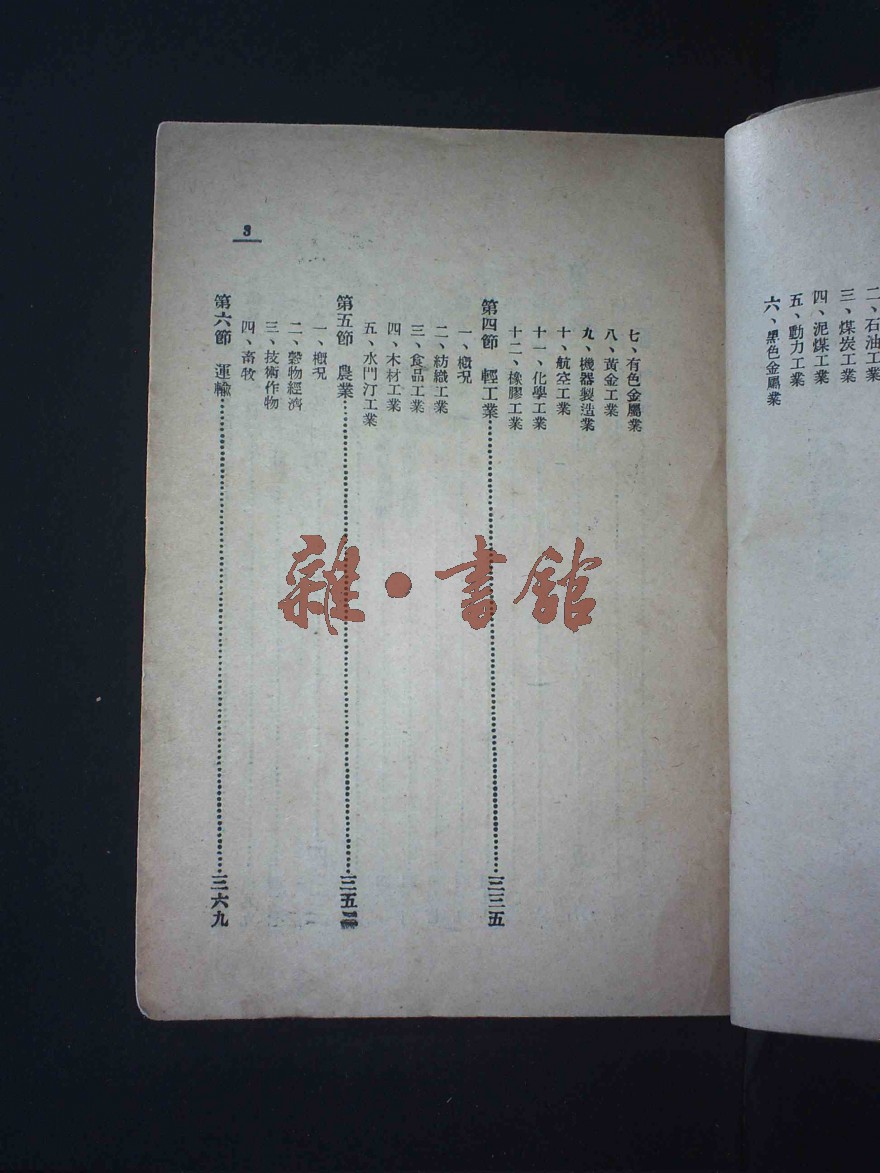 二、石油工業
三、煤炭工業
四、泥煤工業
五、動力工業
六、黑色金屬業
3
七、有色金屬業
八、黃金工業
九、機器製造業
十、航空工業
十一、化學工業
十二、橡膠工業
第四節 輕工業……三三五
一、概況
二、紡織工業
三、食品工業
四、木材工業
五、水門汀工業
第五節 農業……三五
一、概況
二、穀物經濟
三、技術作物
四、畜牧
第六節 運輸……三六九
雜·書館